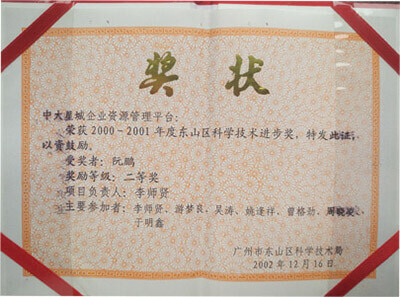 奖状
中大星城企业资源管理平台：
荣获2000-2001年度东山区科学技术进步奖，特发此证，
以资鼓励。
受奖者：阮鹏
奖励等级：二等奖
项目负责人：李师贤
主要参加者：李师贤、游梦良、吴涛、姚逢祥、曾格劭、周晓凌、
于明鑫
广州市东山区科学技术局
2002年12月16日